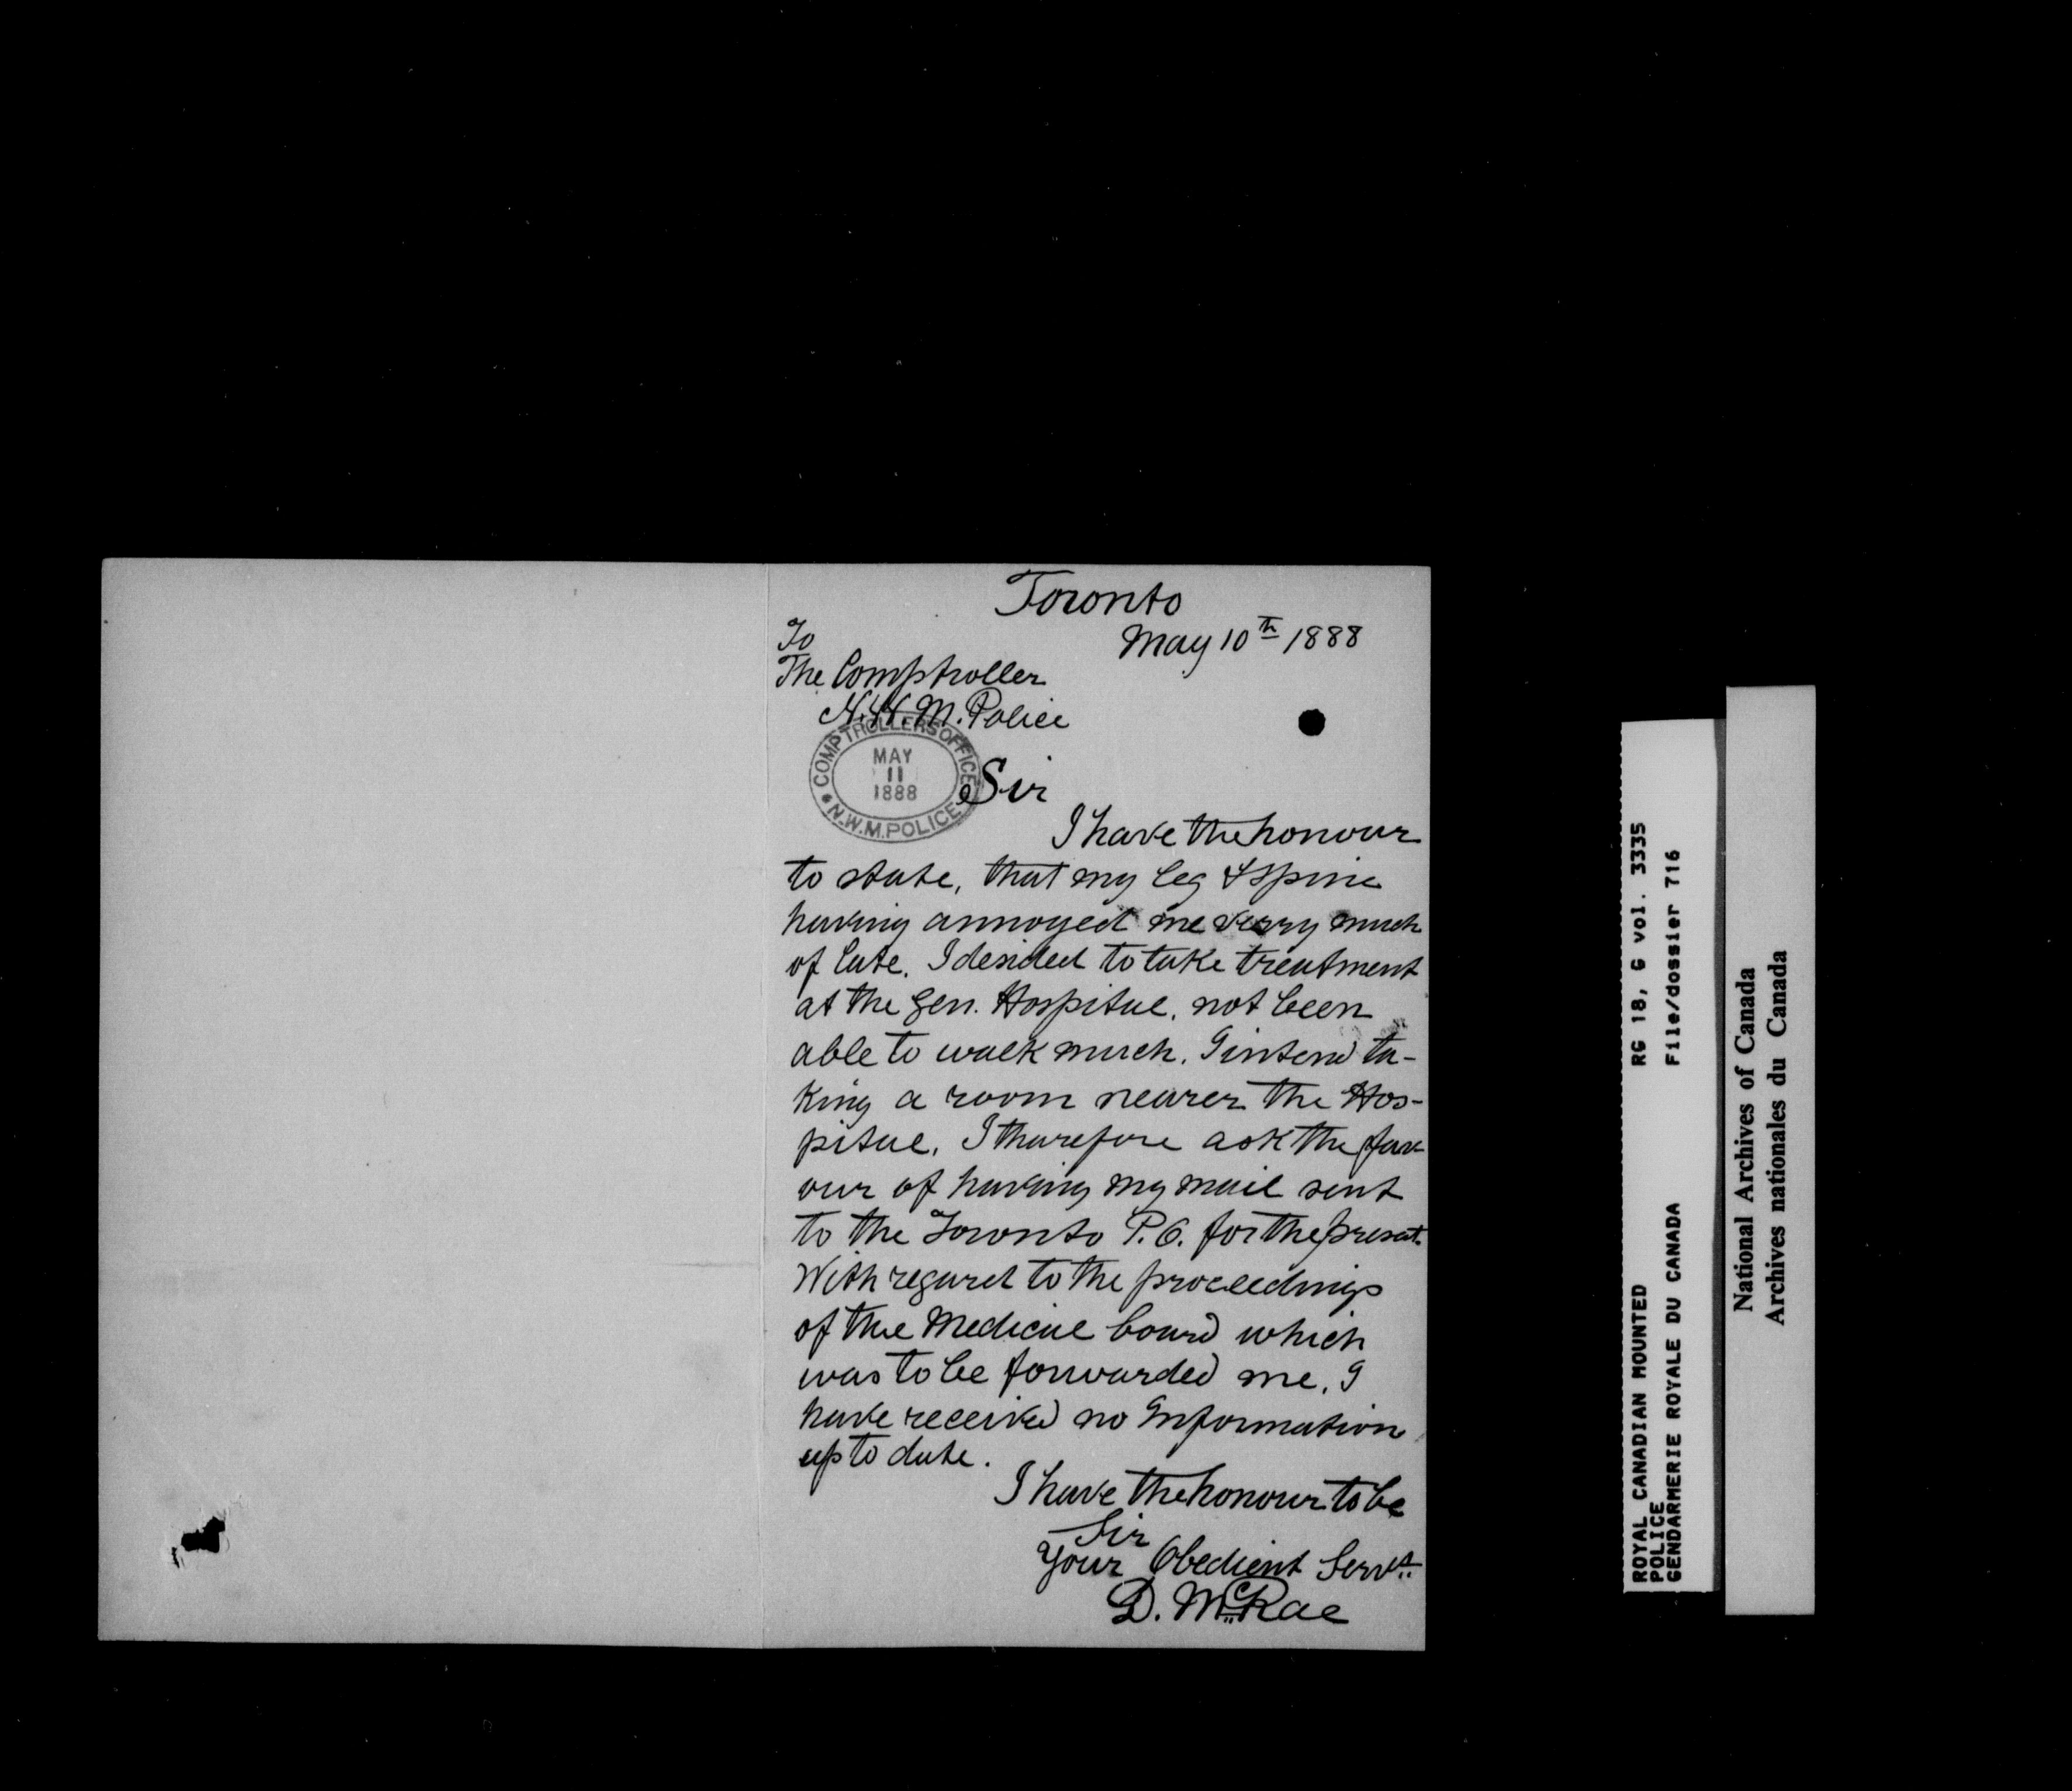 Toronto
May 10th 1888
To
The Comptroller
N.W.M. Police
COMPTROLLERS OFFICE
MAY
11
1888
N.W.M. POLICE
Sir
I have the honour
to state, that my leg & spine
having annoyed me verry much
of late. I desided to take treatment
at the Gen. Hospital, not been
able to walk much. I intend ta-
king a room nearer the Hos-
pital. I tharefore ask the fav-
our of having my mail sent
to the Toronto P.O. for the present.
With regard to the proceedings
of the Medical board which
was to be forwarded me. I
have received no Information
up to date.
I have the honour to be
Sir
Your Obedient Servt.
D. McRae
ROYAL CANADIAN MOUNTED RG 18, G vol. 3335
POLICE
GENDARMERIE ROYALE DU CANADA File/dossier 716
National Archives of Canada
Archives nationales du Canada